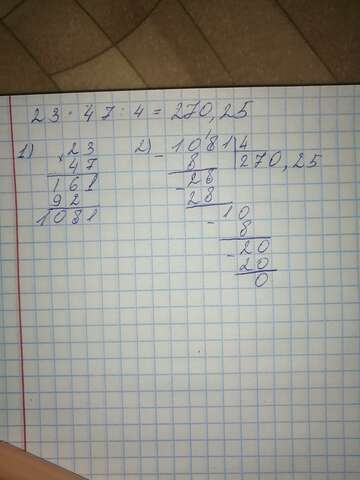 23 · 47 : 4 = 270,25
1) × 23
47
161
92
1081
2) - 1081 | 4
8 270,25
- 28
28
- 10
8
- 20
20
0